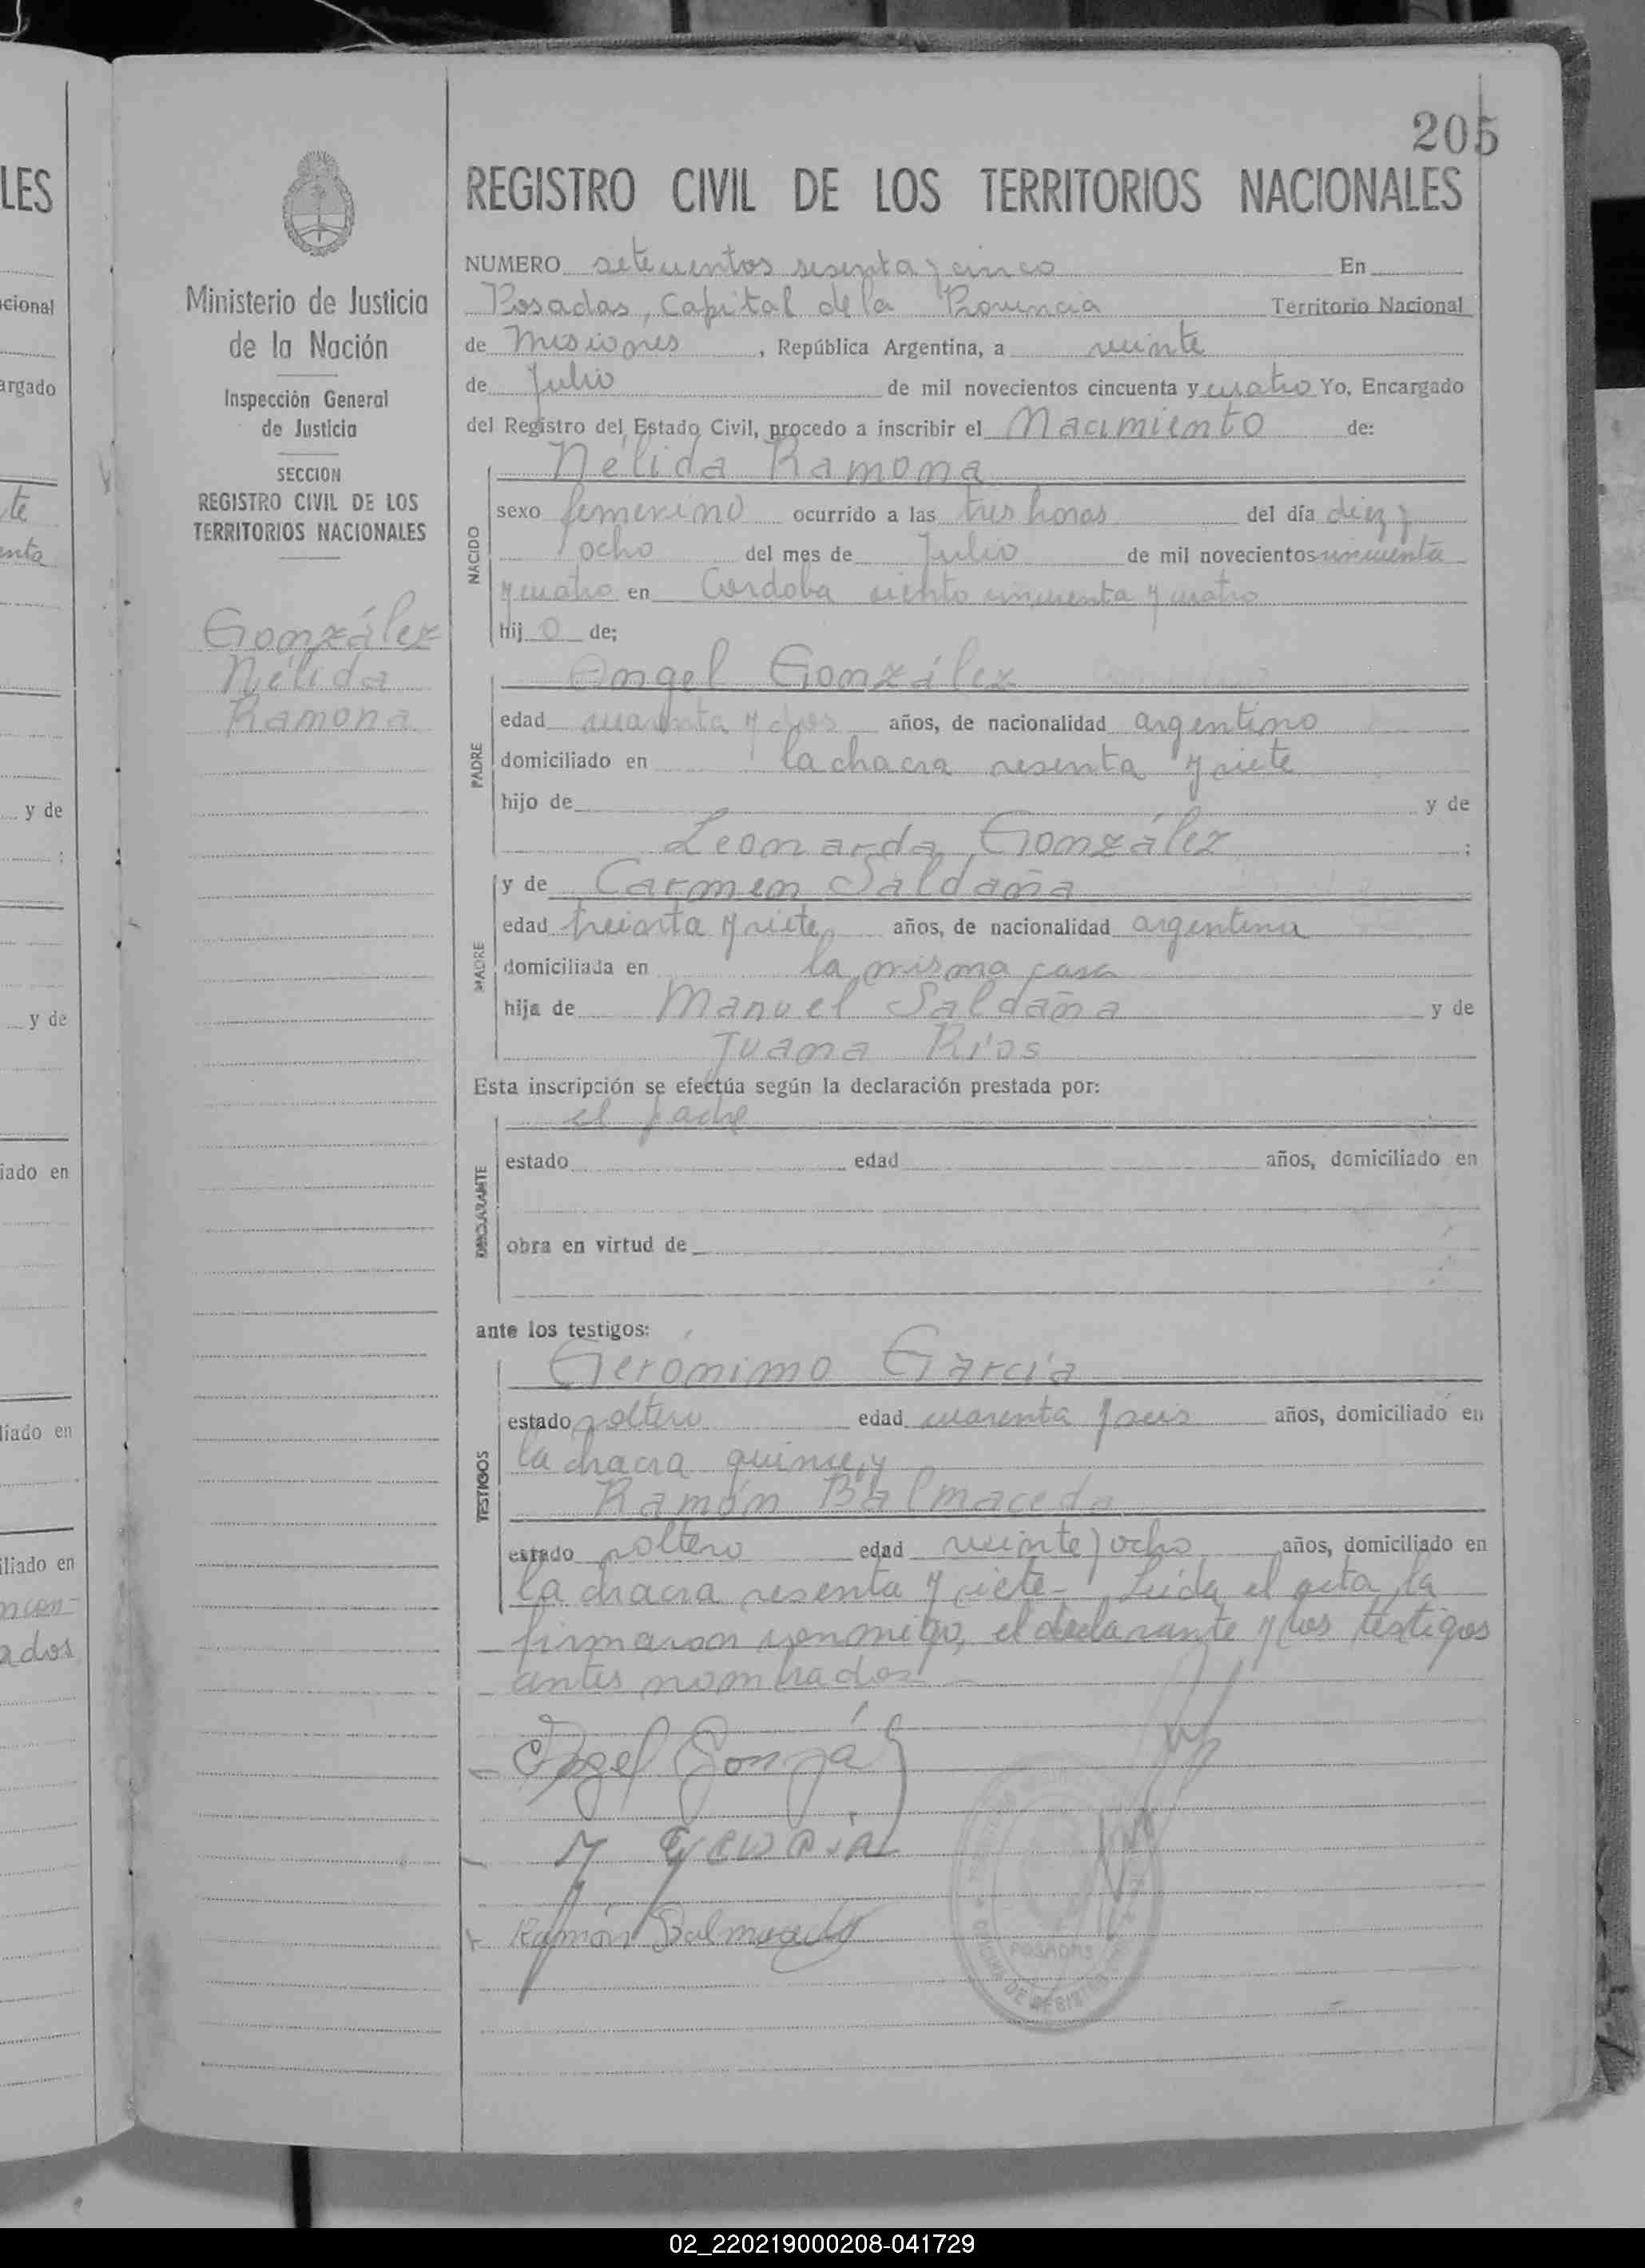 205
REGISTRO CIVIL DE LOS TERRITORIOS NACIONALES
NUMERO setecientos sesenta y cinco En
Posadas, Capital de la Provincia Territorio Nacional
de Misiones, República Argentina, a veinte
de Julio de mil novecientos cincuenta y cuatro Yo, Encargado
del Registro del Estado Civil, procedo a inscribir el Nacimiento de:
Nélida Ramona
NACIDO
sexo femenino ocurrido a las tres horas del día diez y
ocho del mes de Julio de mil novecientos cincuenta
y cuatro en Cordoba ciento cincuenta y cuatro
hij a de;
PADRE
Angel González
edad cuarenta y dos años, de nacionalidad argentino
domiciliado en la chacra sesenta y siete
hijo de y de
Leonarda González ;
MADRE
y de Carmen Saldaña
edad treinta y siete años, de nacionalidad argentina
domiciliada en la misma casa
hija de Manuel Saldaña y de
Juana Ríos
Esta inscripción se efectúa según la declaración prestada por:
el padre
DECLARANTE
estado edad años, domiciliado en
obra en virtud de
ante los testigos:
TESTIGOS
Gerónimo García
estado soltero edad cuarenta y seis años, domiciliado en
la chacra quince y
Ramón Balmaceda
estado soltero edad veinte y ocho años, domiciliado en
la chacra sesenta y siete- Leída el acta, la
firmaron conmigo, el declarante y los testigos
antes nombrados.-
Angel Gonzá
Ramón Balmaceda
POSADAS
Ministerio de Justicia
de la Nación
Inspección General
de Justicia
SECCION
REGISTRO CIVIL DE LOS
TERRITORIOS NACIONALES
González
Nélida
Ramona
LES
cional
argado
te
enta
y de
;
y de
iado en
liado en
iliado en
ncon-
ados
02_220219000208-041729